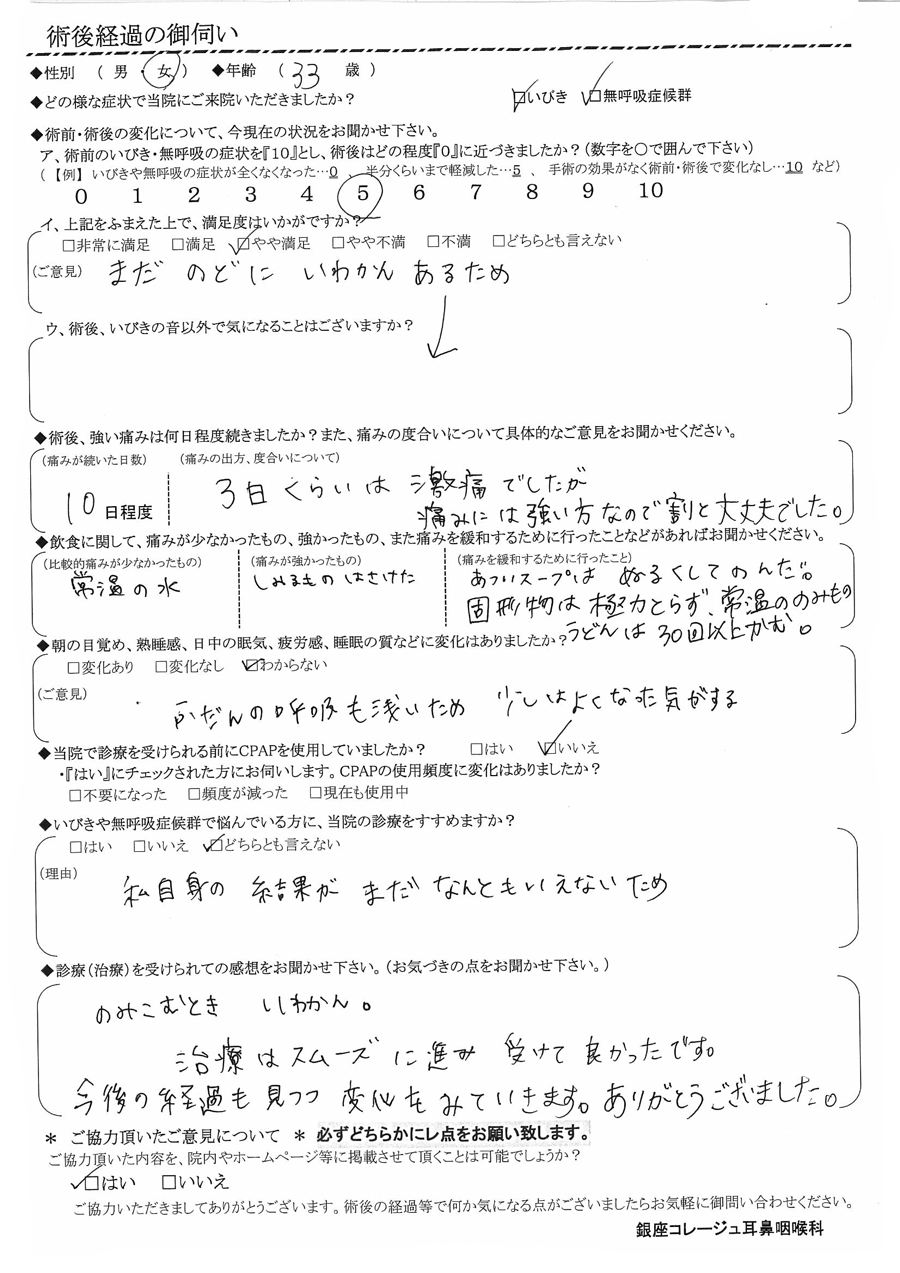 術後経過の御伺い
◆性別 ( 男 ・ 女 ) ◆年齢 ( 33 歳 )
◆どの様な症状で当院にご来院いただきましたか? ☑いびき ☑無呼吸症候群
◆術前・術後の変化について、今現在の状況をお聞かせ下さい。
ア、術前のいびき・無呼吸の症状を『10』とし、術後はどの程度『0』に近づきましたか?(数字を○で囲んで下さい)
(【例】いびきや無呼吸の症状が全くなくなった…0 、 半分くらいまで軽減した…5 、 手術の効果がなく術前・術後で変化なし…10 など)
0 1 2 3 4 5 6 7 8 9 10
イ、上記をふまえた上で、満足度はいかがですか?
□非常に満足 □満足 ☑やや満足 □やや不満 □不満 □どちらとも言えない
(ご意見) まだ のどに いわかん あるため
ウ、術後、いびきの音以外で気になることはございますか?
◆術後、強い痛みは何日程度続きましたか?また、痛みの度合いについて具体的なご意見をお聞かせください。
(痛みが続いた日数) (痛みの出方、度合いについて)
3日くらいは 激痛でしたが
10日程度 痛みには強い方なので割と大丈夫でした。
◆飲食に関して、痛みが少なかったもの、強かったもの、また痛みを緩和するために行ったことなどがあればお聞かせください。
(比較的痛みが少なかったもの) (痛みが強かったもの) (痛みを緩和するために行ったこと)
常温の水 しみるものはさけた あついスープは ぬるくしてのんだ。
固形物は極力とらず、常温ののみもの
うどんは30回以上かむ。
◆朝の目覚め、熟睡感、日中の眠気、疲労感、睡眠の質などに変化はありましたか?
□変化あり □変化なし ☑わからない
(ご意見)
ふだんの呼吸も浅いため 少しはよくなった気がする
◆当院で診療を受けられる前にCPAPを使用していましたか? □はい ☑いいえ
・『はい』にチェックされた方にお伺いします。CPAPの使用頻度に変化はありましたか?
□不要になった □頻度が減った □現在も使用中
◆いびきや無呼吸症候群で悩んでいる方に、当院の診療をすすめますか?
□はい □いいえ ☑どちらとも言えない
(理由)
私自身の 結果が まだ なんともいえないため
◆診療(治療)を受けられての感想をお聞かせ下さい。(お気づきの点をお聞かせ下さい。)
のみこむとき いわかん。
治療はスムーズに進み 受けて良かったです。
今後の経過も見つつ 変化をみていきます。ありがとうございました。
* ご協力頂いたご意見について * 必ずどちらかにレ点をお願い致します。
ご協力頂いた内容を、院内やホームページ等に掲載させて頂くことは可能でしょうか?
☑はい □いいえ
ご協力いただきましてありがとうございます。術後の経過等で何か気になる点がございましたらお気軽に御問い合わせください。
銀座コレージュ耳鼻咽喉科